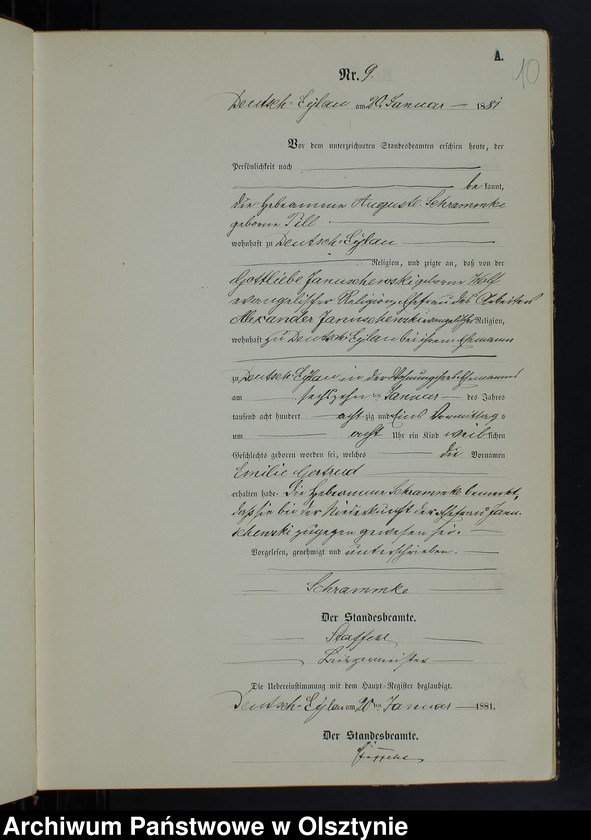 A.
10
Nr. 9.
Deutsch-Eylau am 20 Januar 1881
Vor dem unterzeichneten Standesbeamten erschien heute, der
Persönlichkeit nach
be kannt,
die Hebeamme Auguste Schrammke
geborene Till
wohnhaft zu Deutsch-Eylau
Religion, und zeigte an, daß von der
Gottliebe Januschewski geborene Wolf
evangelischer Religion, Ehefrau des Arbeiters
Alexander Januschewski evangelischer Religion,
wohnhaft zu Deutsch-Eylau bei ihrem Ehemann
zu Deutsch-Eylau in der Wohnung ihres Ehemannes
am sechszehn ten Januar des Jahres
tausend acht hundert achtzig und Eins Vormittags
um acht Uhr ein Kind weiblichen
Geschlechts geboren worden sei, welches die Vornamen
Emilie Gertrud
erhalten habe. Die Hebeamme Schrammke bemerkt,
daß sie bei der Niederkunft der Ehefrau Janu-
schewski zugegen gewesen sei.
Vorgelesen, genehmigt und unterschrieben.
Schrammke
Der Standesbeamte.
Bürgermeister
Die Uebereinstimmung mit dem Haupt-Register beglaubigt.
Deutsch-Eylau am 20 ten Januar 1881.
Der Standesbeamte.
Archiwum Państwowe w Olsztynie